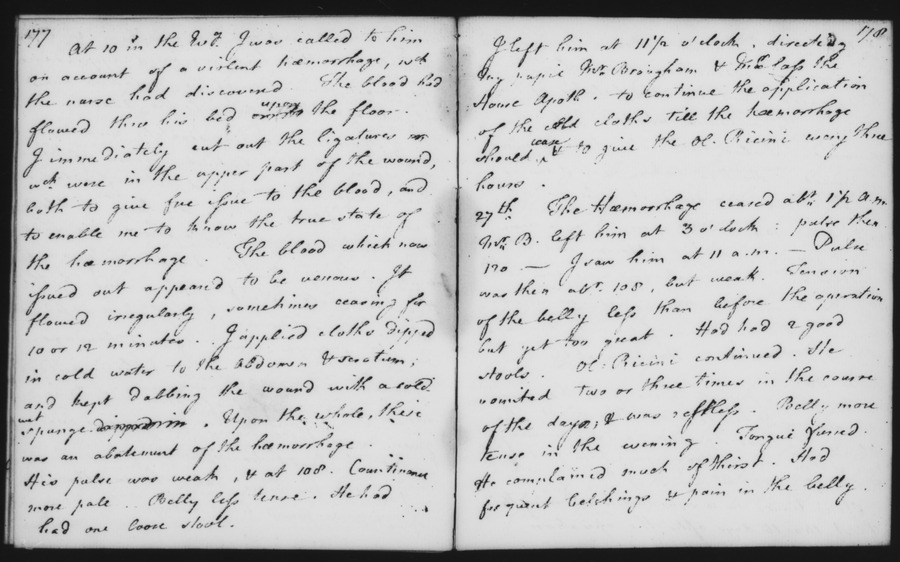 177
At 10 in the Evg. I was called to him
on account of a violent hæmorrhage, wch
the nurse had discovered. The blood had
flowed thro his bed upon the floor.
I immediately cut out the ligatures
wch were in the upper part of the wound,
both to give free issue to the blood, and
to enable me to know the true state of
the hæmorrhage. The blood which now
issued out appeared to be venous. It
flowed irregularly, sometimes ceasing for
10 or 12 minutes. I applied cloths dipped
in cold water to the abdomen & scrotum;
and kept dabbing the wound with a cold
wet
spunge. Upon the whole, there
was an abatement of the hæmorrhage.
His pulse was weak, & at 108. Countinance
more pale. Belly less tense. He had
had one loose stool.
178
I left him at 11 1/2 o'clock, directing
my pupil Mr. Brougham & the
House Apoth. to continue the application
of the cold cloths till the hæmorrhage
should cease, & to give the Ol. Ricini every three
hours.
27th. The Hæmorrhage ceased abt. 1 1/2 a.m.
Mr. B. left him at 3 o'clock: pulse then
120 — I saw him at 11 a.m. — Pulse
was then abt. 108, but weak. Tension
of the belly less than before the operation
but yet too great. Had had 2 good
stools. Ol: Ricini continued. He
vomited two or three times in the course
of the day, & was restless. Belly more
tense in the evening. Tongue furred.
He complained much of thirst. Had
frequent belchings & pain in the belly.